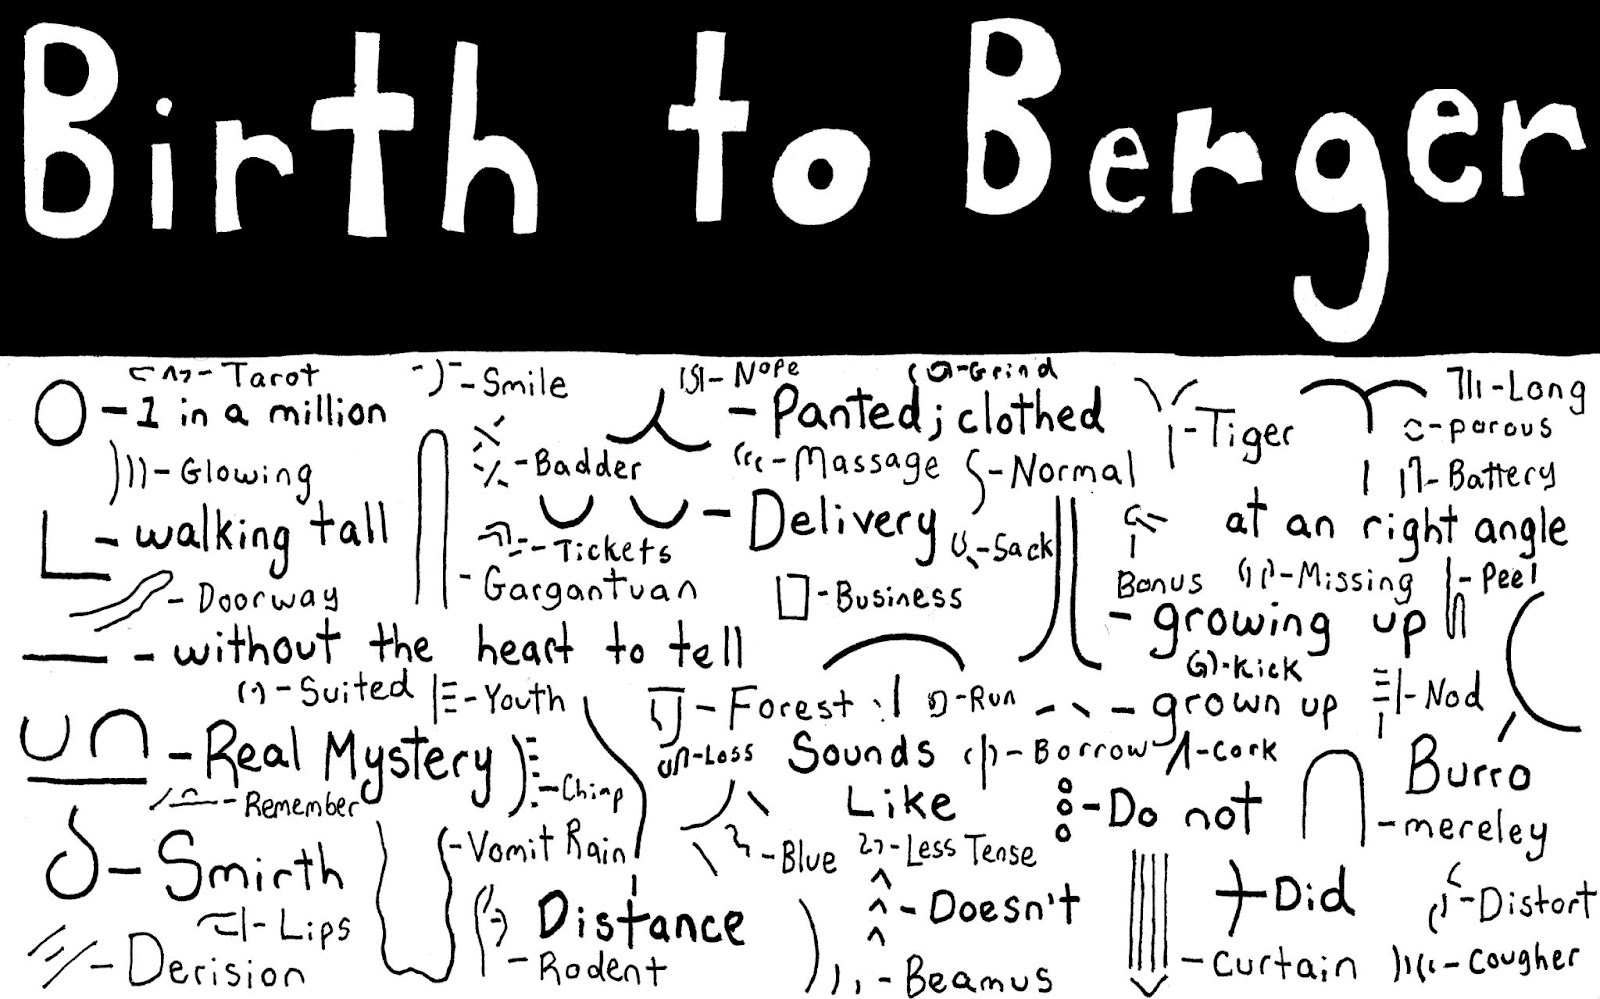 Birth to Berger
Tarot
Smile
Nope
Grind
Long
1 in a million
Panted; clothed
Tiger
porous
Glowing
Badder
Massage
Normal
Battery
walking tall
Delivery
at an right angle
Tickets
Sack
Doorway
Gargantuan
Business
Bonus
Missing
Peel
without the heart to tell
growing up
Kick
Suited
Youth
Forest
Run
grown up
Nod
Real Mystery
Loss
Sounds
Borrow
Cork
Burro
Remember
Chimp
Like
Do not
mereley
Smirth
Vomit Rain
Blue
Less Tense
Lips
Distance
Doesn't
Did
Distort
Derision
Rodent
Beamus
Curtain
Cougher